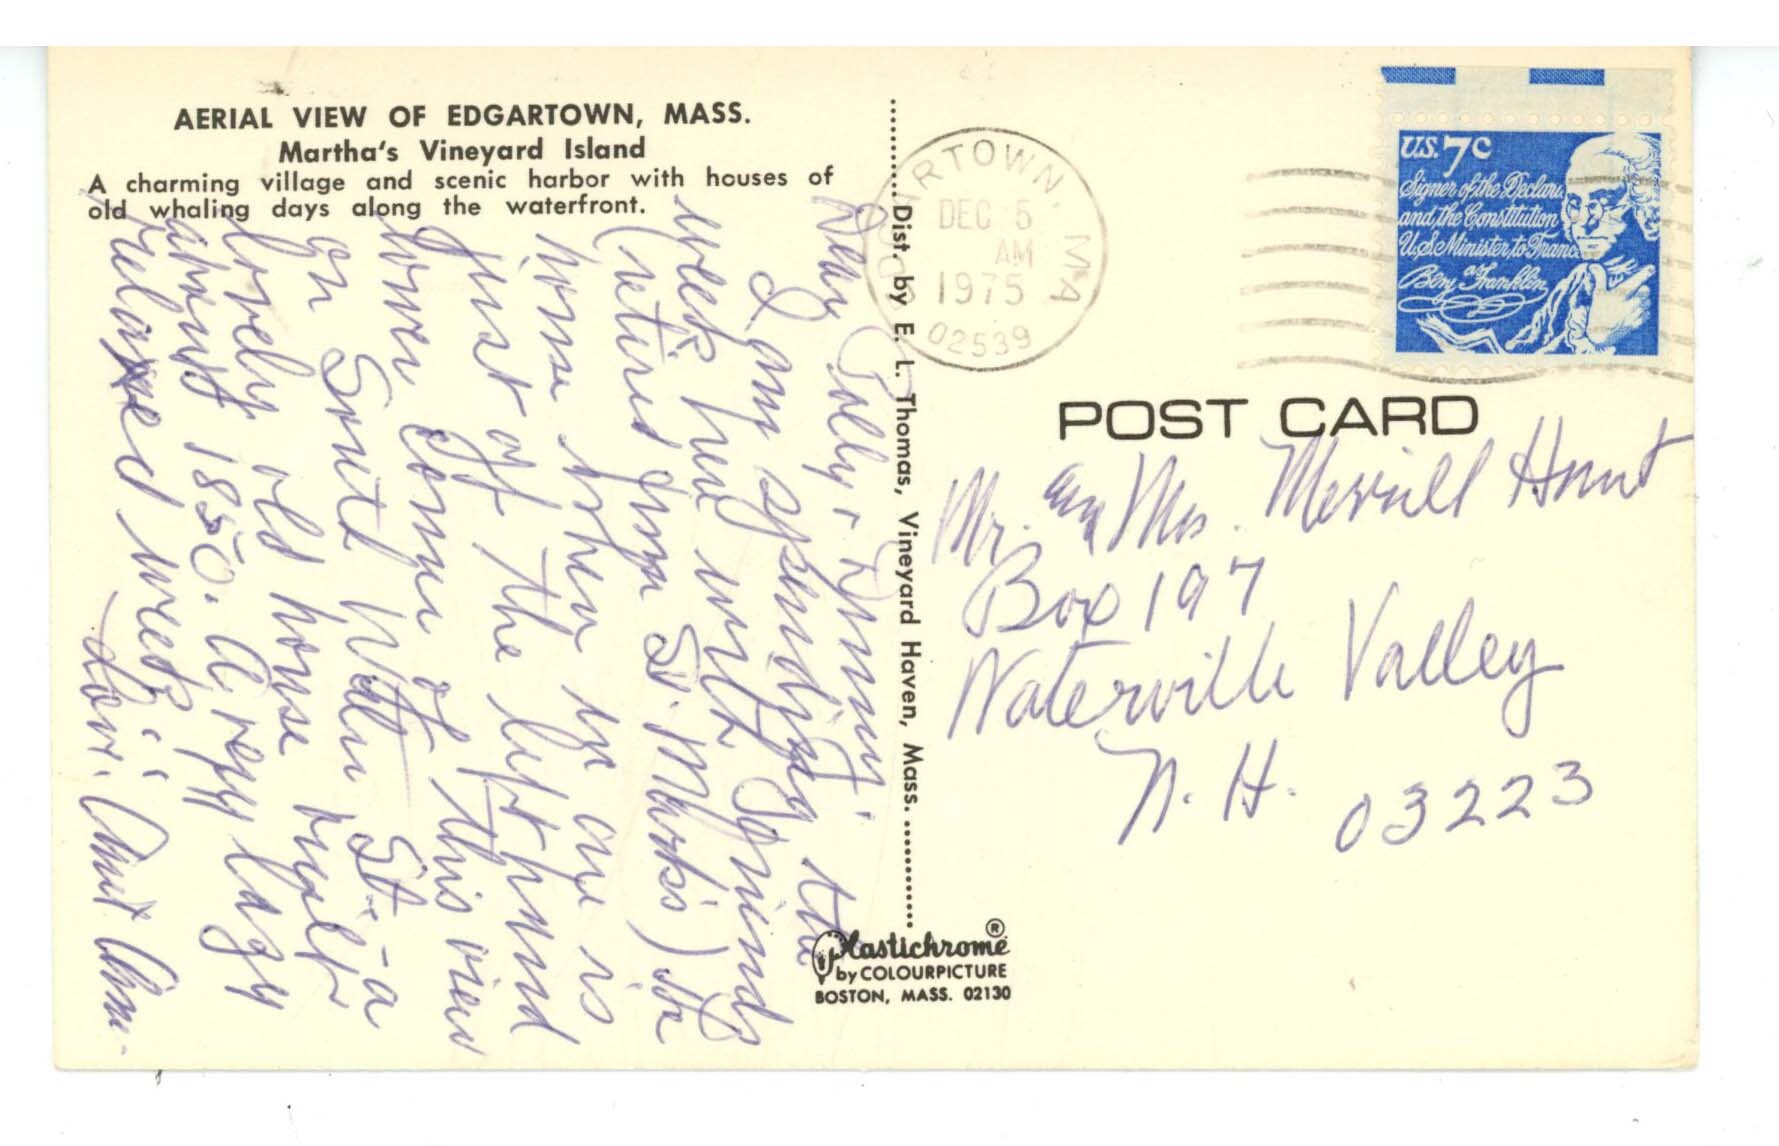 AERIAL VIEW OF EDGARTOWN, MASS.
Martha's Vineyard Island
A charming village and scenic harbor with houses of
old whaling days along the waterfront.
Dear Polly +
I am spending the
week here with friends
(retired from St. Mark's) the
house where we are is
just off the left hand
lower corner of this view
on South Water St. - a
lovely old house built
about 1850. A very lazy
relaxed week!
Love, Aunt Anne.
Dist. by E. L. Thomas, Vineyard Haven, Mass.
Plastichrome ®
by COLOURPICTURE
BOSTON, MASS. 02130
EDGARTOWN, MA
DEC 5
AM
1975
02539
U.S. 7c
Signer of the Declara
and the Constitution
U.S. Minister to France
Benj a Franklin
POST CARD
Mr. and Mrs. Merrill Hunt
Box 197
Waterville Valley
N. H. 03223